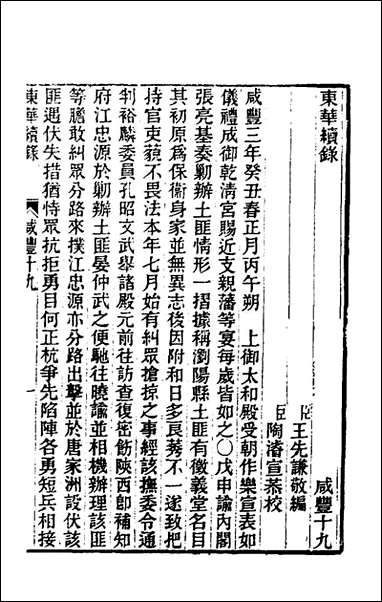 東華續錄
咸豐十九
臣王先謙敬編
臣陶濬宣恭校
咸豐三年癸丑春正月丙午朔　上御太和殿受朝作樂宣表如
儀禮成御乾清宮賜近支親藩等宴每歲皆如之〇戊申諭內閣
張亮基奏勦辦土匪情形一摺據稱瀏陽縣土匪有徵義堂名目
其初原爲保衞身家並無異志後因附和日多良莠不一遂致把
持官吏藐不畏法本年七月始有糾眾搶掠之事經該撫委令通
判裕麟委員孔昭文武舉諸殿元前往訪查復密飭陝西卽補知
府江忠源於勦辦土匪晏仲武之便馳往曉諭並相機辦理該匪
等膽敢糾眾分路來撲江忠源亦分路出擊並於唐家洲設伏該
匪遇伏失措猶恃眾抗拒勇目何正杭爭先陷陣各勇短兵相接
東華續錄
咸豐十九
一